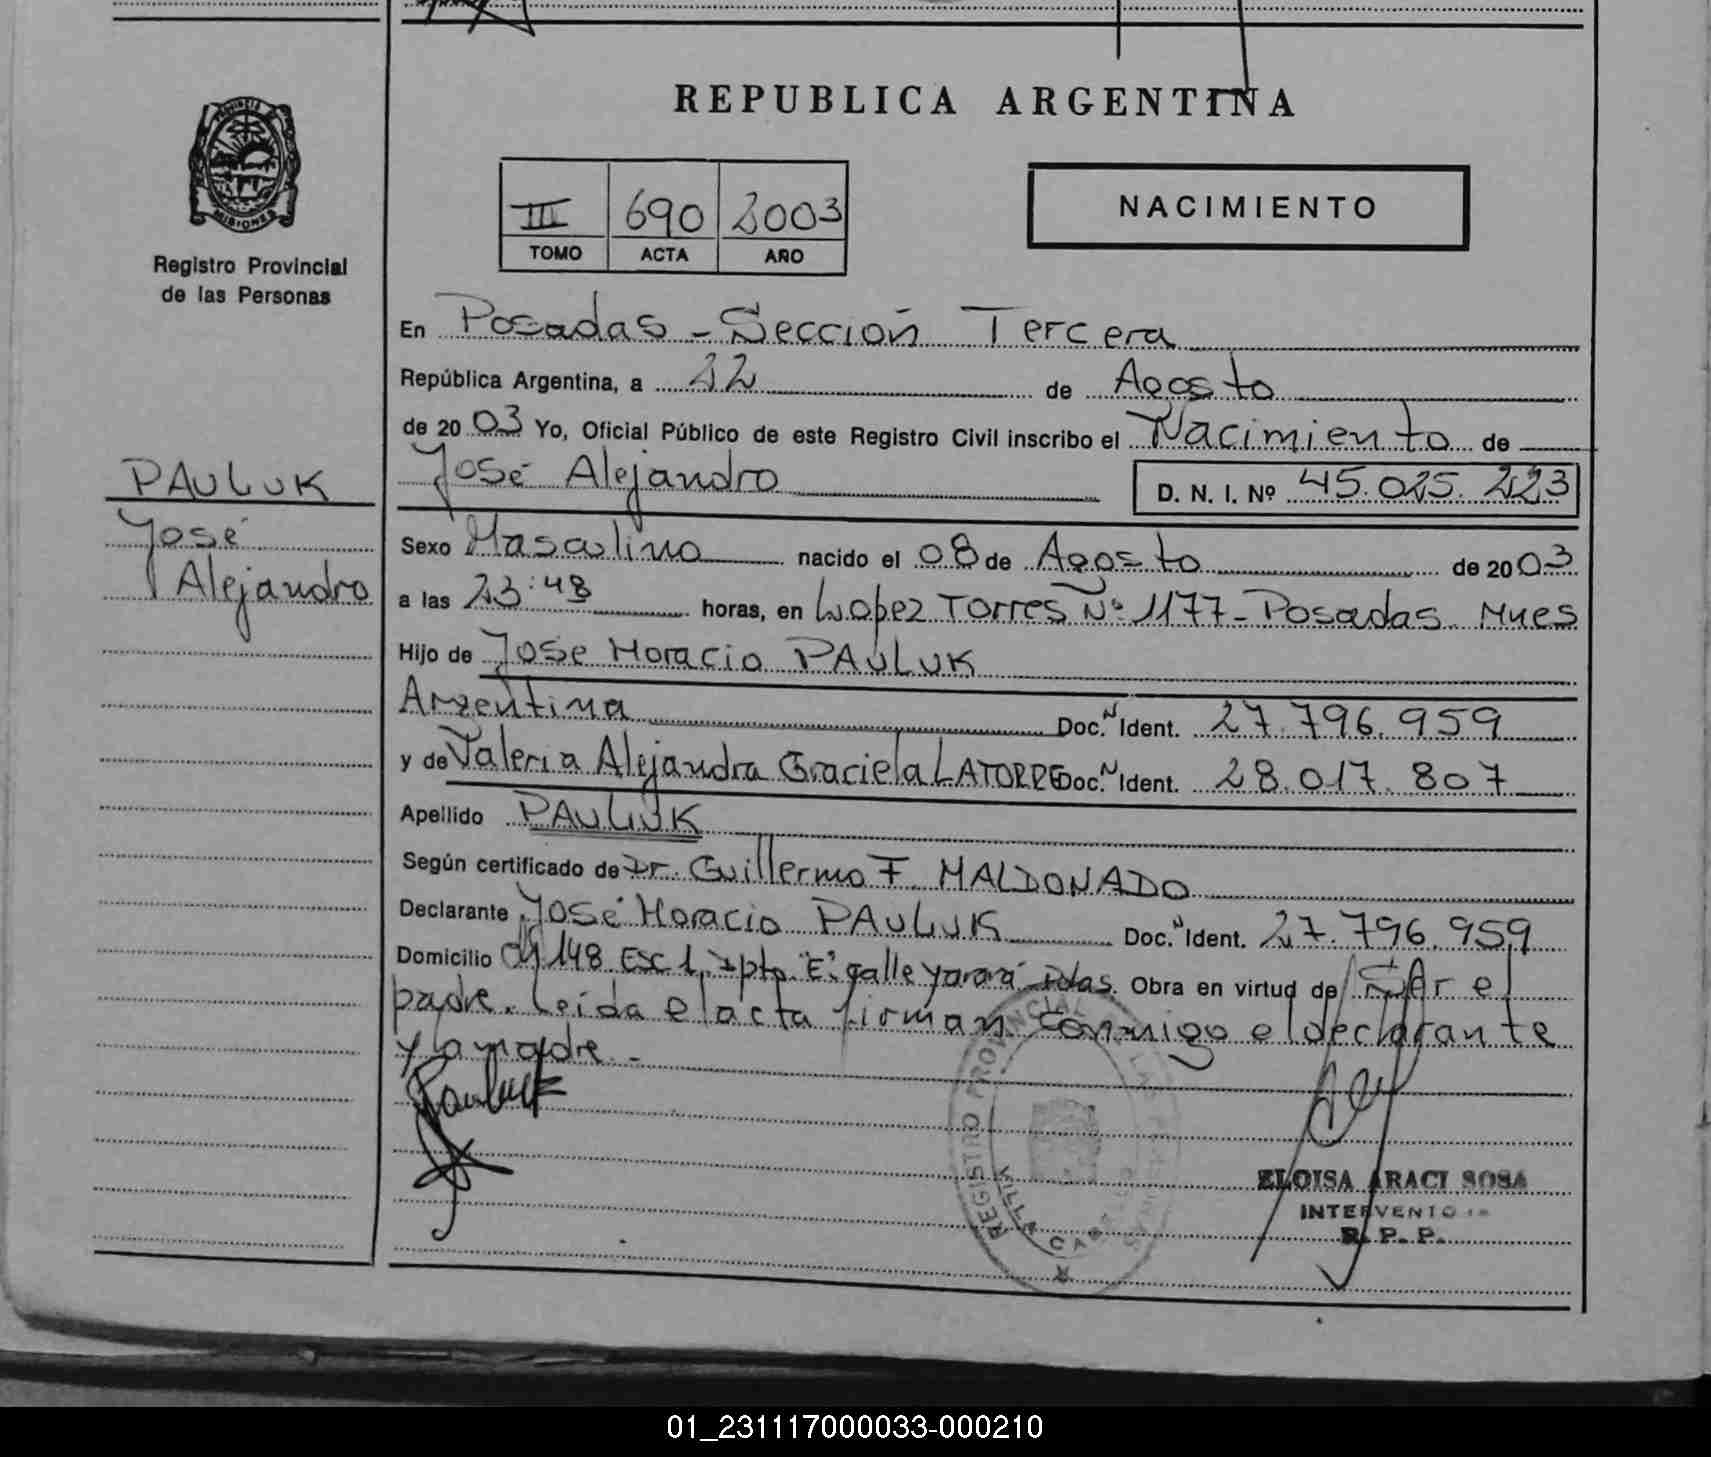 REPUBLICA ARGENTINA
PROVINCIA DE
MISIONES
Registro Provincial
de las Personas
NACIMIENTO
III 690 2003
TOMO ACTA AÑO
En Posadas - Sección Tercera
República Argentina, a 22 de Agosto
de 2003 Yo, Oficial Público de este Registro Civil inscribo el Nacimiento de
José Alejandro D. N. I. Nº 45.025.223
PAULUK
José
Alejandro
Sexo Masculino nacido el 08 de Agosto de 2003
a las 23:48 horas, en Lopez Torres Nº 1177 - Posadas Mnes
Hijo de Jose Horacio PAULUK
Argentina Doc. Ident. 27.796.959
y de Valeria Alejandra Graciela LATORRE Doc. Ident. 28.017.807
Apellido PAULUK
Según certificado de Dr. Guillermo F. MALDONADO
Declarante José Horacio PAULUK Doc. Ident. 27.796.959
Domicilio 148 Esc 1, Dpto "E" calle Yarará Pdas. Obra en virtud de Ser el
padre. Leída el acta firman conmigo el declarante
y la madre -
Pauluk
REGISTRO PROVINCIAL DE LAS PERSONAS
VILLA CABELLO
ELOISA ARACI SOSA
INTERVENTO
R. P. P.
01_231117000033-000210